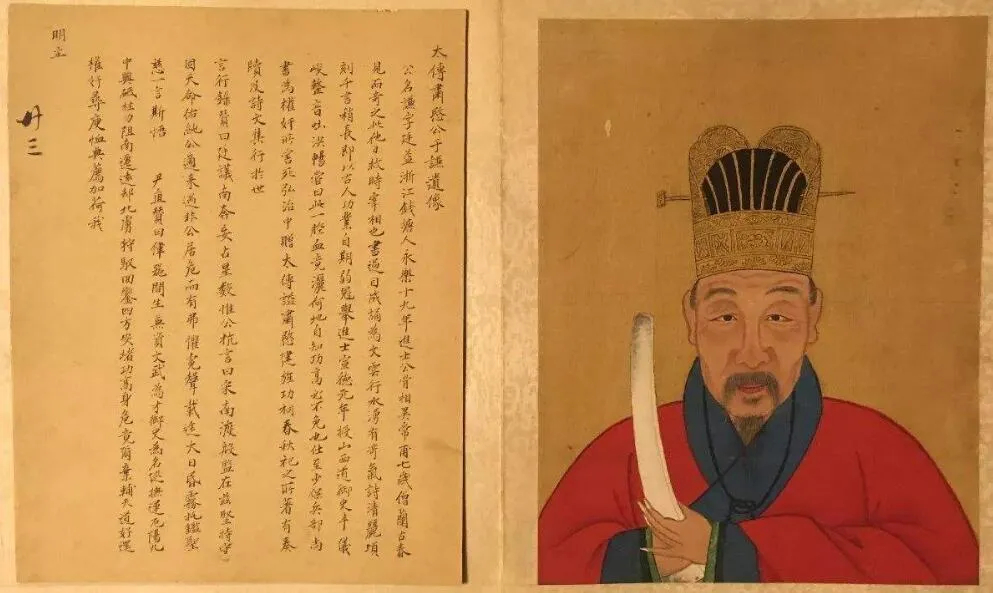 太傅肅愍公于謙遺像
公名謙字廷益浙江錢塘人永樂十九年進士公骨相異常甫七歲僧蘭古春
見而奇之此他日救時宰相也書過目成誦為文雲行水湧有奇氣詩清麗頃
刻千言稍長即以古人功業自期弱冠舉進士宣德元年授山西道御史丰儀
峻整音吐洪暢嘗曰此一腔血竟灑何地自知功高必不免也仕至少保兵部尚
書為權奸所害死弘治中贈太傅謚肅愍建旌功祠春秋祀之所著有奏
牘及詩文集行於世
言行錄贊曰廷議南奔妄占星數惟公抗言曰宋南渡殷監在茲堅持守
回天命佑純公適來遇非公居危而有弗懼竟聲載途大日昏霧抗鑑聖
慈一言斯悟 尹直贊曰偉器間生兼資文武為才御史為名從撫運厄陽九
中興砥柱力阻南遷遠却北虜狩馭回鑾四方安堵功高身危竟爾棄輔天道好還
權奸尋庾恤典薦加荷我
明主
卅三